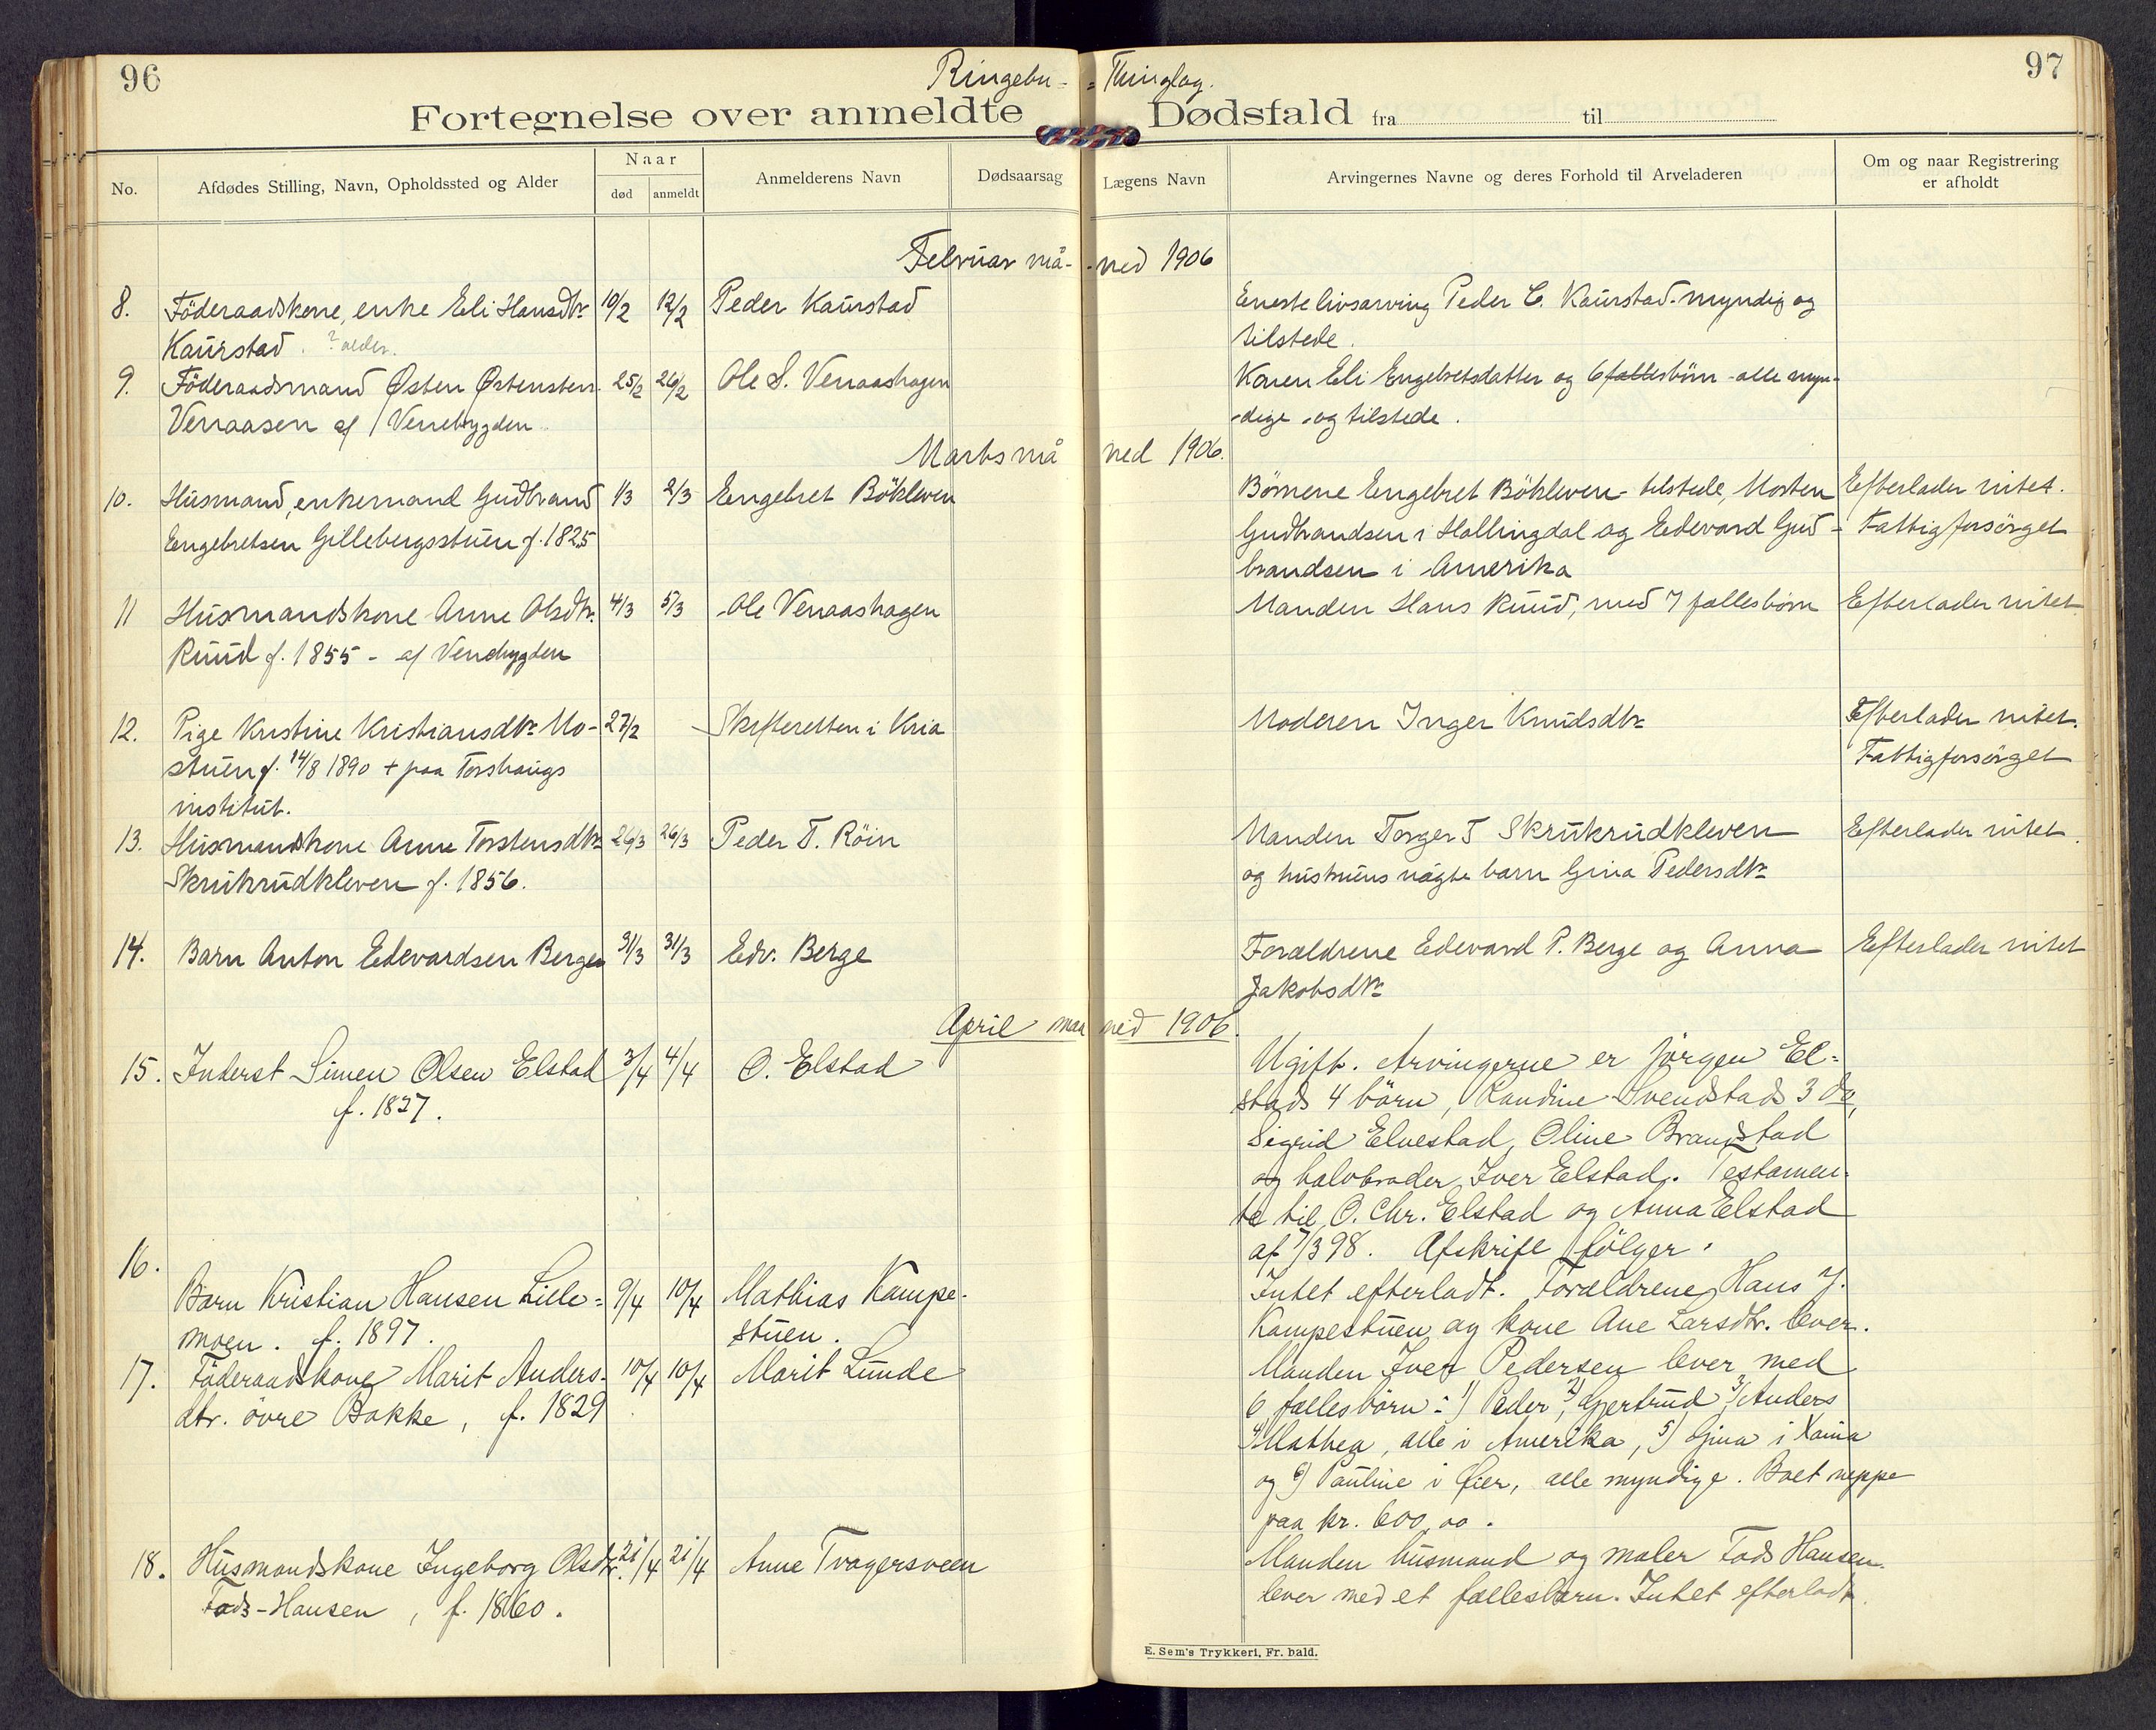 96
Ringebu-
= Thinglag.
97
Fortegnelse over anmeldte Dødsfald fra til
No.
Afdødes Stilling, Navn, Opholdssted og Alder
Naar
død
anmeldt
Anmelderens Navn
Dødsaarsag
Lægens Navn
Arvingernes Navne og deres Forhold til Arveladeren
Om og naar Registrering
er afholdt
Februar må- -ned 1906
8. Föderaadskone, enke Eli Hansdtr 10/2 12/2 Peder Kaurstad
Kaurstad. ? alder.
Eneste livsarving Peder C. Kaurstad - myndig og
tilstede.
9. Föderaadsmand Østen Østensten 25/2 26/2 Ole S. Venaashagen
Venaasen af Venebygden
Konen Eli Engebretsdatter og 6 fællesbörn - alle myn-
-dige - og tilstede.
Marts må ned 1906.
10. Husmand, enkemand Gudbrand 1/3 2/3 Engebret Bökleven
Engebretsen Gillebergsstuen f. 1825
Börnene Engebret Bökleven - tilstede, Morten
Gudbrandsen i Hallingdal og Edevard Gud-
brandsen i Amerika
Efterlader intet.
Fattigforsörget
11 Husmandskone Anne Olsdtr. 4/3 5/3 Ole Venaashagen
Ruud f. 1855 - af Venebygden
Manden Hans Ruud, med 7 fællesbörn
Efterlader intet
12. Pige Kristine Kristiansdtr Mo- 27/2 Skifteretten i Kria
stuen f. 14/8 1890 + paa Torshaugs
institut.
Moderen Inger Knudsdtr
Efterlader intet.
Fattigforsörget
13. Husmandskone Anne Torstensdtr 26/3 26/3 Peder T. Röin
Skrukrudkleven f. 1856.
Manden Torger T Skrukrudkleven
og hustruens uägte barn Gina Pedersdtr
Efterlader intet.
14. Barn Anton Edevardsen Berge 31/3 31/3 Edv. Berge
Forældrene Edevard P. Berge og Anna
Jakobsdtr
Efterlader intet
April maa ned 1906.
15. Inderst Simen Olsen Elstad 3/4 4/4 O. Elstad
f. 1827.
Ugift. Arvingerne er Jörgen El-
stads 4 börn, Randine Svendstads 3 do,
Sigrid Elvestad, Oline Brandstad
og halvbroder Iver Elstad. Testamen-
te til O. Chr. Elstad og Anna Elstad
af 7/3 98. Afskrift fölger.
16.
Barn Kristian Hansen Lille- 9/4 10/4 Mathias Kampe-
moen. f. 1897. stuen.
Intet efterladt. Forældrene Hans J.
Kampestuen og kone Ane Larsdtr. lever.
17. Föderaadskone Marit Anders- 10/4 10/4 Marit Lunde
dtr. övre Bakke, f. 1829
Manden Iver Pedersen lever med
6 fællesbörn: 1) Peder, 2) Gjertrud 3) Anders
4) Mathea, alle i Amerika, 5) Gina i
og 6) Pauline i Øier, alle myndige. Boet neppe
paa kr. 600,00.
18. Husmandskone Ingeborg Olsdtr. 21/4 21/4 Anne Tragersveen
Fads-Hansen, f. 1860.
Manden husmand og maler Fads Hansen
lever med et fællesbarn. Intet efterladt.
E. Sem's Trykkeri, Fr.hald.